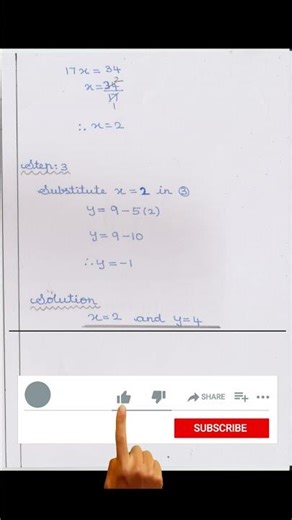 17x = 34
x = 34/17 2 1
∴ x = 2
Step: 3
Substitute x = 2 in ③
y = 9 - 5(2)
y = 9 - 10
∴ y = -1
Solution
x = 2 and y = 4
SHARE
SUBSCRIBE